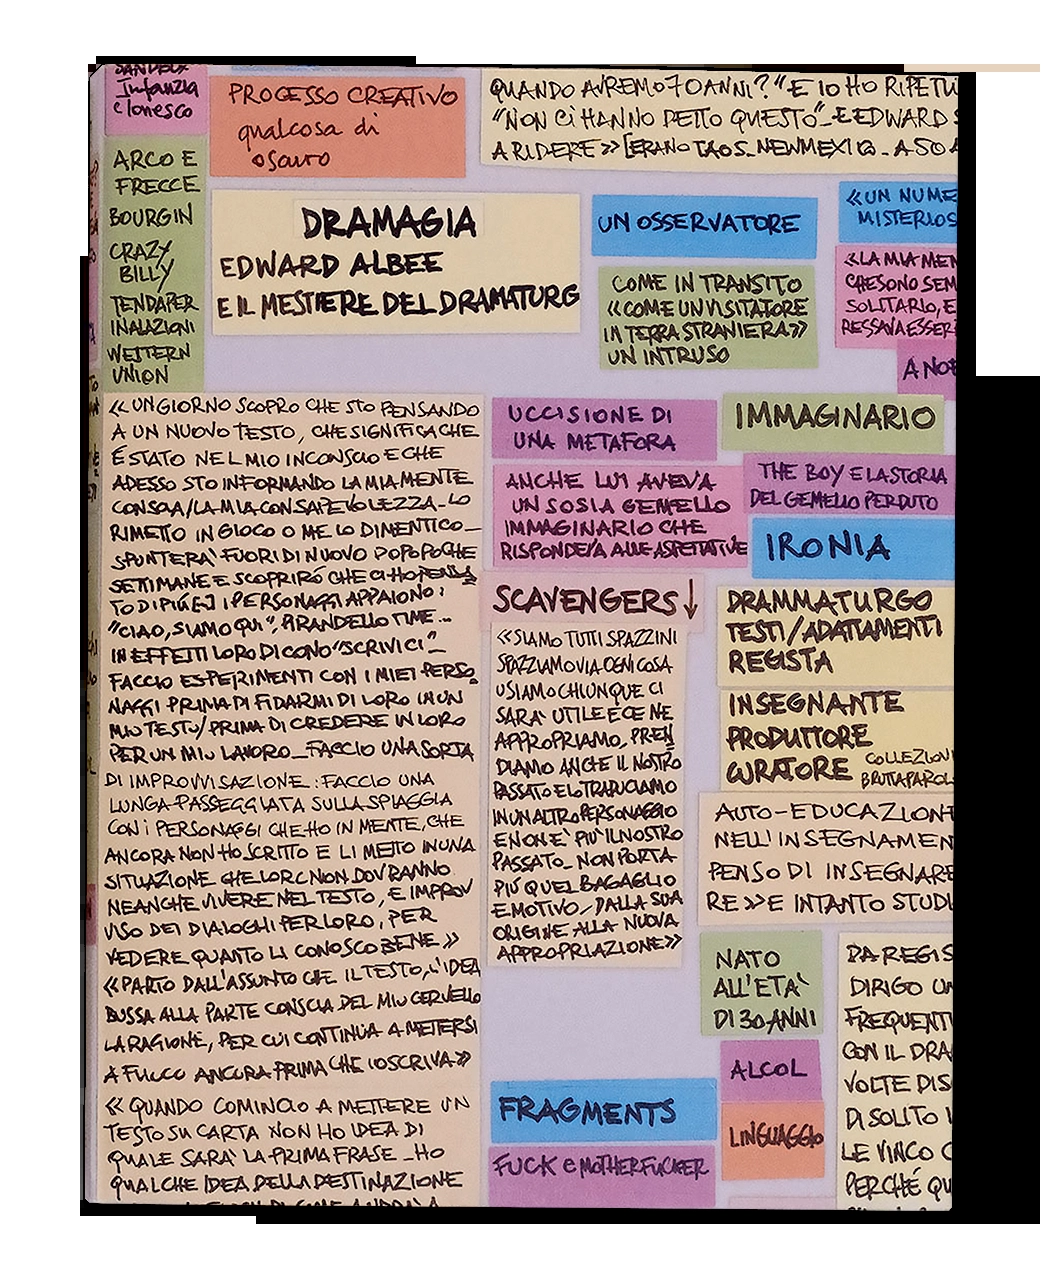 SANDBOX
Infanzia
e Ionesco
PROCESSO CREATIVO
qualcosa di
oscuro
QUANDO AVREMO 70 ANNI?" E IO HO RIPETU
"NON CI HANNO DETTO QUESTO"_E EDWARD S
A RIDERE>> [ERANO TAOS_NEWMEXICO_A 50 A
ARCO E
FRECCE
BOURGIN
CRAZY
BILLY
TENDAPER
INALAZIONI
WESTERN
UNION
DRAMAGIA
EDWARD ALBEE
E IL MESTIERE DEL DRAMATURG
UN OSSERVATORE
COME IN TRANSITO
<<COME UN VISITATORE
IN TERRA STRANIERA>>
UN INTRUSO
<<UN NUME
MISTERIOS
<<LA MIA MEN
CHE SONO SEM
SOLITARIO, E
RESSAVA ESSER
A NOR
<<UN GIORNO SCOPRO CHE STO PENSANDO
A UN NUOVO TESTO, CHE SIGNIFICA CHE
É STATO NEL MIO INCONSCIO E CHE
ADESSO STO INFORMANDO LA MIA MENTE
CONSCIA/LA MIA CONSAPEVOLEZZA_LO
RIMETTO IN GIOCO O ME LO DIMENTICO_
SPUNTERA' FUORI DI NUOVO DOPO POCHE
SETTIMANE E SCOPRIRÓ CHE CI HO PENSA
TO DI PIÚ E] I PERSONAGGI APPAIONO:
"CIAO, SIAMO QUI", PIRANDELLO TIME...
IN EFFETTI LORO DICONO "SCRIVICI"_
FACCIO ESPERIMENTI CON I MIEI PERSO
NAGGI PRIMA DI FIDARMI DI LORO IN UN
MIO TESTO/PRIMA DI CREDERE IN LORO
PER UN MIO LAVORO_FACCIO UNA SORTA
DI IMPROVVISAZIONE: FACCIO UNA
LUNGA PASSEGGIATA SULLA SPIAGGIA
CON i PERSONAGGI CHE HO IN MENTE, CHE
ANCORA NON HO SCRITTO E LI METTO IN UNA
SITUAZIONE CHE LORO NON DOVRANNO
NEANCHE VIVERE NEL TESTO, E IMPROV
VISO DEI DIALOGHI PER LORO, PER
VEDERE QUANTO LI CONOSCO BENE>>
<<PARTO DALL'ASSUNTO CHE IL TESTO, L'IDEA
BUSSA ALLA PARTE CONSCIA DEL MIO CERVELLO
LA RAGIONE, PER CUI CONTINUA A METTERSI
A FUOCO ANCORA PRIMA CHE IO SCRIVA>>
<<QUANDO COMINCIO A METTERE UN
TESTO SU CARTA NON HO IDEA DI
QUALE SARA' LA PRIMA FRASE_HO
QUALCHE IDEA DELLA DESTINAZIONE
UCCISIONE DI
UNA METAFORA
IMMAGINARIO
ANCHE LUI AVEVA
UN SOSIA GEMELLO
IMMAGINARIO CHE
RISPONDEVA ALLE ASPETTATIVE
THE BOY E LA STORIA
DEL GEMELLO PERDUTO
IRONIA
SCAVENGERS↓
<<SIAMO TUTTI SPAZZINI
SPAZZIAMO VIA OGNI COSA
USIAMO CHIUNQUE CI
SARA' UTILE E CE NE
APPROPRIAMO, PREN
DIAMO ANCHE IL NOSTRO
PASSATO E LO TRADUCIAMO
IN UN ALTRO PERSONAGGIO
E NON E' PIU' IL NOSTRO
PASSATO_NON PORTA
PIÚ QUEL BAGAGLIO
EMOTIVO_DALLA SUA
ORIGINE ALLA NUOVA
APPROPRIAZIONE>>
DRAMMATURGO
TESTI/ADATTAMENTI
REGISTA
INSEGNANTE
PRODUTTORE
CURATORE COLLEZIONI
BRUTTA PAROL
AUTO-EDUCAZION
NELL'INSEGNAMEN
PENSO DI INSEGNARE
RE>>E INTANTO STUDI
NATO
ALL'ETA'
DI 30 ANNI
ALCOL
LINGUAGGIO
DA REGIS
DIRIGO UN
FREQUENTI
CON IL DRA
VOLTE DIS
DI SOLITO
LE VINCO
PERCHÉ QU
FRAGMENTS
FUCK e MOTHERFUCKER